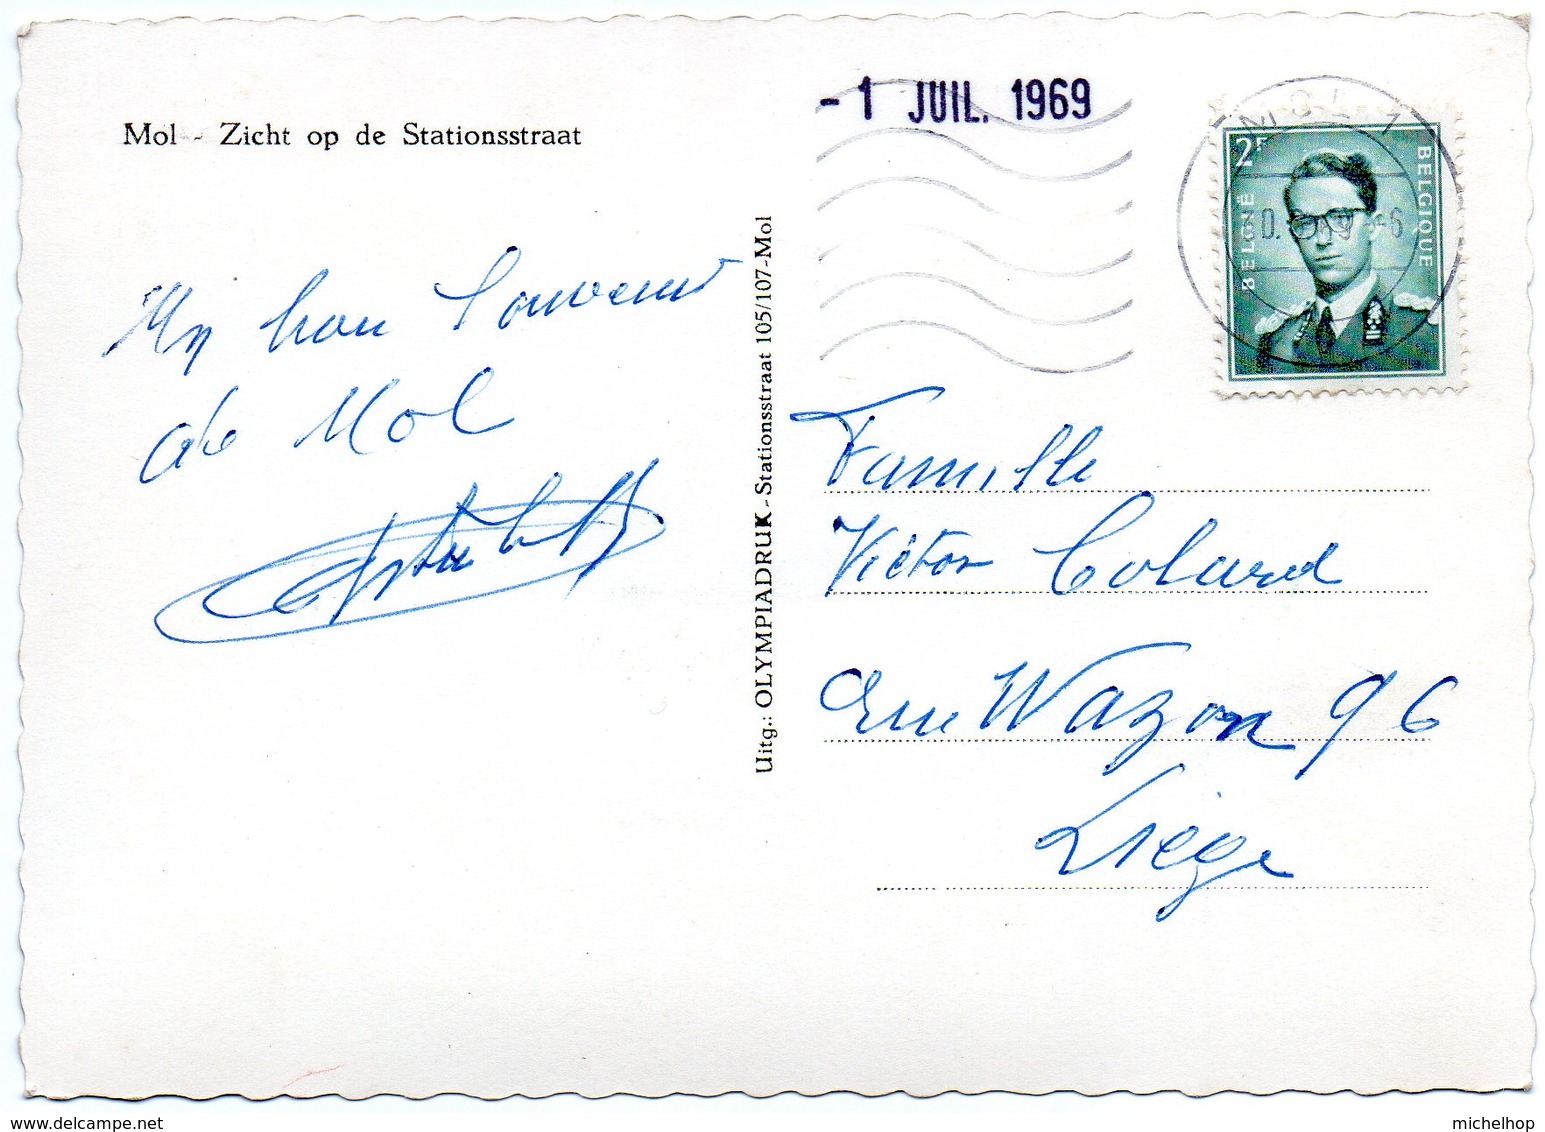 Mol - Zicht op de Stationsstraat
Un bon Souvenir
de Mol
Uitg.: OLYMPIADRUK - Stationsstraat 105/107 - Mol
- 1 JUIL. 1969
MOL 1
30. 69 -6
2F
BELGIË
BELGIQUE
Famille
Victor Colard
rue Wazon 96
Liège
www.delcampe.net
michelhop